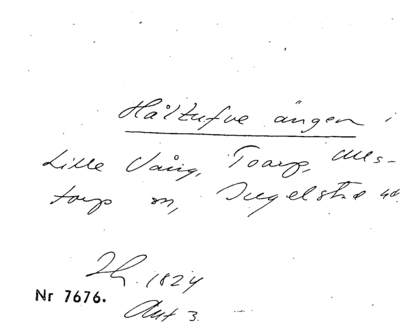 Håltufve ängen i
Lille Vång, Toarp, Alls-
torp m, Ingelstad
Th. 1824
Nr 7676.
Akt 3